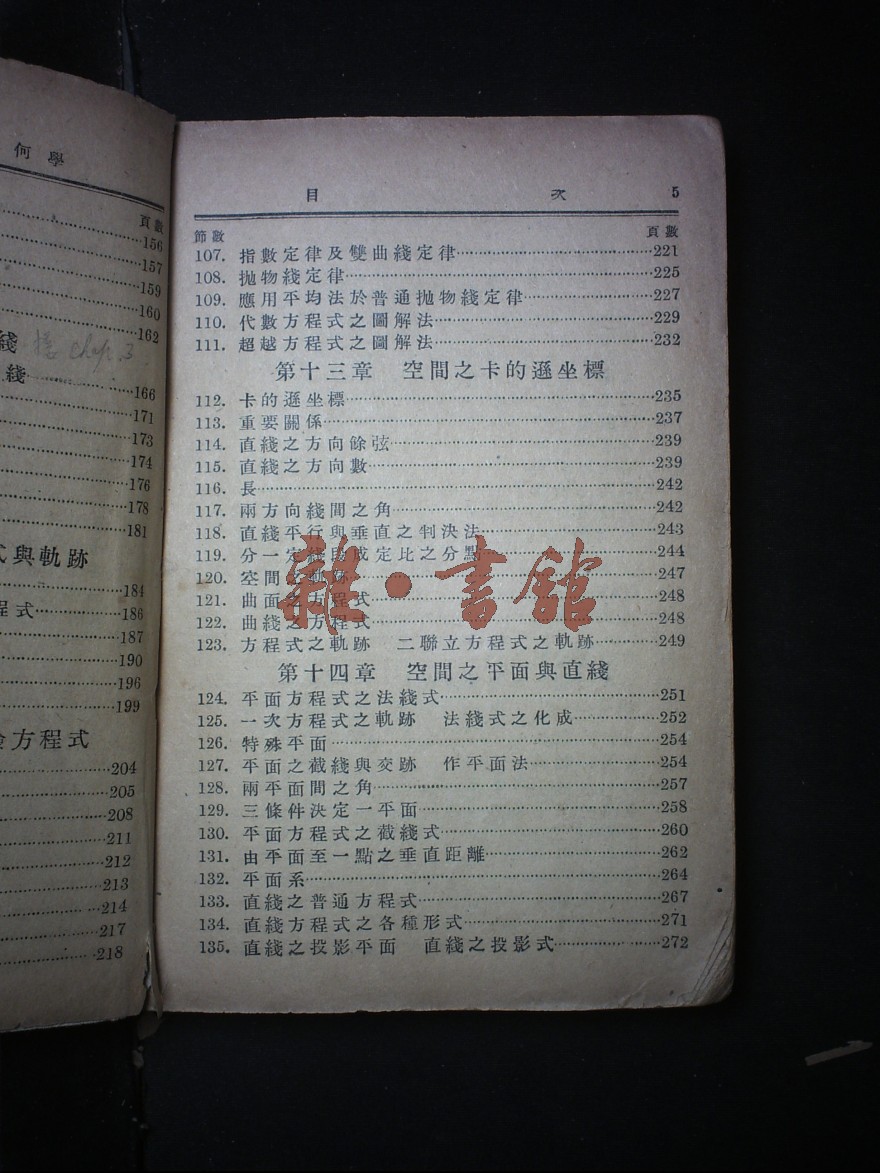 何學
頁數
156
157
159
160
162
綫 Chap. 3
綫
166
171
173
174
176
178
181
式與軌跡
184
程式 186
187
190
196
199
驗方程式
204
205
208
211
212
213
214
217
218
目 次 5
節數 頁數
107. 指數定律及雙曲綫定律 221
108. 拋物綫定律 225
109. 應用平均法於普通拋物綫定律 227
110. 代數方程式之圖解法 229
111. 超越方程式之圖解法 232
第十三章 空間之卡的遜坐標
112. 卡的遜坐標 235
113. 重要關係 237
114. 直綫之方向餘弦 239
115. 直綫之方向數 239
116. 長 242
117. 兩方向綫間之角 242
118. 直綫平行與垂直之判決法 243
119. 分一定綫段成定比之分點 244
120. 空間之軌跡 247
121. 曲面之方程式 248
122. 曲綫之方程式 248
123. 方程式之軌跡 二聯立方程式之軌跡 249
第十四章 空間之平面與直綫
124. 平面方程式之法綫式 251
125. 一次方程式之軌跡 法綫式之化成 252
126. 特殊平面 254
127. 平面之截綫與交跡 作平面法 254
128. 兩平面間之角 257
129. 三條件決定一平面 258
130. 平面方程式之截綫式 260
131. 由平面至一點之垂直距離 262
132. 平面系 264
133. 直綫之普通方程式 267
134. 直綫方程式之各種形式 271
135. 直綫之投影平面 直綫之投影式 272
雜·書館